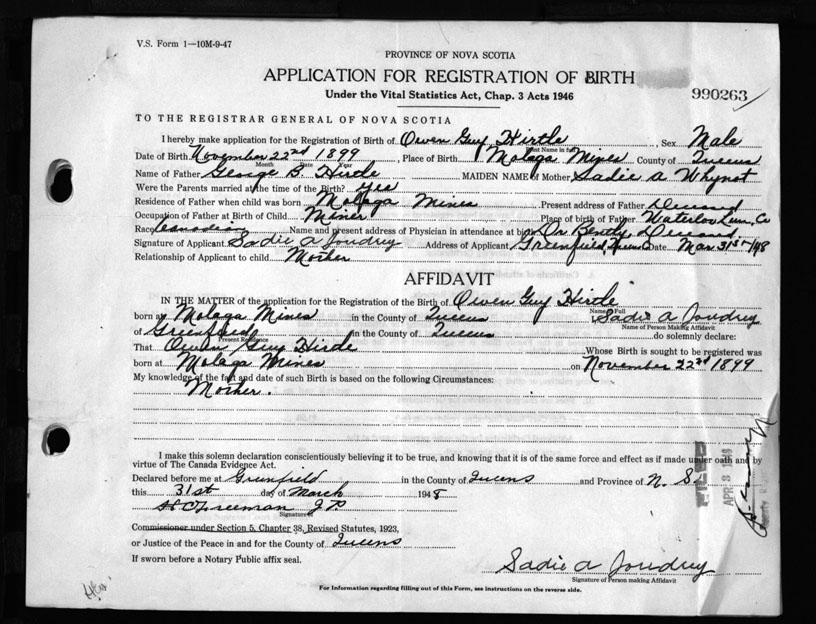 V.S. Form 1—10M-9-47
PROVINCE OF NOVA SCOTIA
APPLICATION FOR REGISTRATION OF BIRTH
Under the Vital Statistics Act, Chap. 3 Acts 1946
990263
TO THE REGISTRAR GENERAL OF NOVA SCOTIA
I hereby make application for the Registration of Birth of Owen Guy Hirtle, Sex Male
Print Name in full
Date of Birth November 22nd 1899, Place of Birth Molaga Mines County of Queens
Month Day Year
Name of Father George B. Hirtle MAIDEN NAME of Mother Sadie A Whynot
Were the Parents married at the time of the Birth? yes
Residence of Father when child was born Molaga Mines Present address of Father Deceased
Occupation of Father at Birth of Child Miner Place of birth of Father Waterloo Lun. Co
Race Canadian Name and present address of Physician in attendance at birth Dr Bently Deceased
Signature of Applicant Sadie A Joudrey Address of Applicant Greenfield, Queens C Date Mar. 31st/48
Relationship of Applicant to child Mother
AFFIDAVIT
IN THE MATTER of the application for the Registration of the Birth of Owen Guy Hirtle
Name in Full
born at Molaga Mines in the County of Queens I, Sadie A Joudrey
Name of Person Making Affidavit
of Greenfield in the County of Queens do solemnly declare:
Present Residence
That Owen Guy Hirtle Whose Birth is sought to be registered was
born at Molaga Mines on November 22nd 1899
My knowledge of the fact and date of such Birth is based on the following Circumstances:
Mother.
I make this solemn declaration conscientiously believing it to be true, and knowing that it is of the same force and effect as if made under oath and by
virtue of The Canada Evidence Act.
Declared before me at Greenfield in the County of Queens and Province of N. S.
this 31st day of March 1948
H C Freeman J P
Signature
Commissioner under Section 5, Chapter 38, Revised Statutes, 1923,
or Justice of the Peace in and for the County of Queens
If sworn before a Notary Public affix seal.
Sadie A Joudrey
Signature of Person making Affidavit
For Information regarding filling out of this Form, see instructions on the reverse side.
APR 3